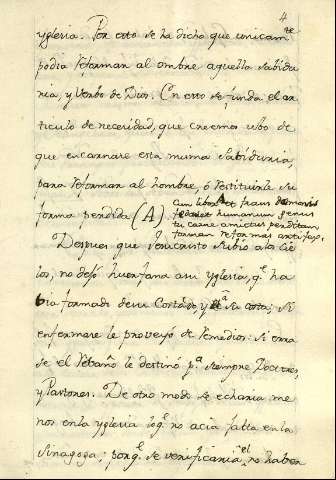 4
yglesia. Por esto se ha dicho que unicam.te
podia reformar al ombre aquella sabidu
ria, y Verbo de Dios. En esto se funda el ar
ticulo de necesidad, que creemos ubo de
que encarnare esta misma Sabiduria,
para reformar al hombre, ó restituirle su
forma perdida (A).
fraus demonis
humanum genus
tu carne amictus perditam
formam reformas artifex.
Despues que Jesucristo subió a los Cie
los, no dejó huerfana asu yglesia, q.e ha
bia formado de su Costado, y a su costa; si
enfermare le proveyó de remedios: si erra
se el Rebaño le destinó p.a siempre Doctores,
y Pastores. De otro modo se echaria me
nos en la yglesia lo q.e no acia falta en la
Sinagoga; porq.e se verificaria el no haber